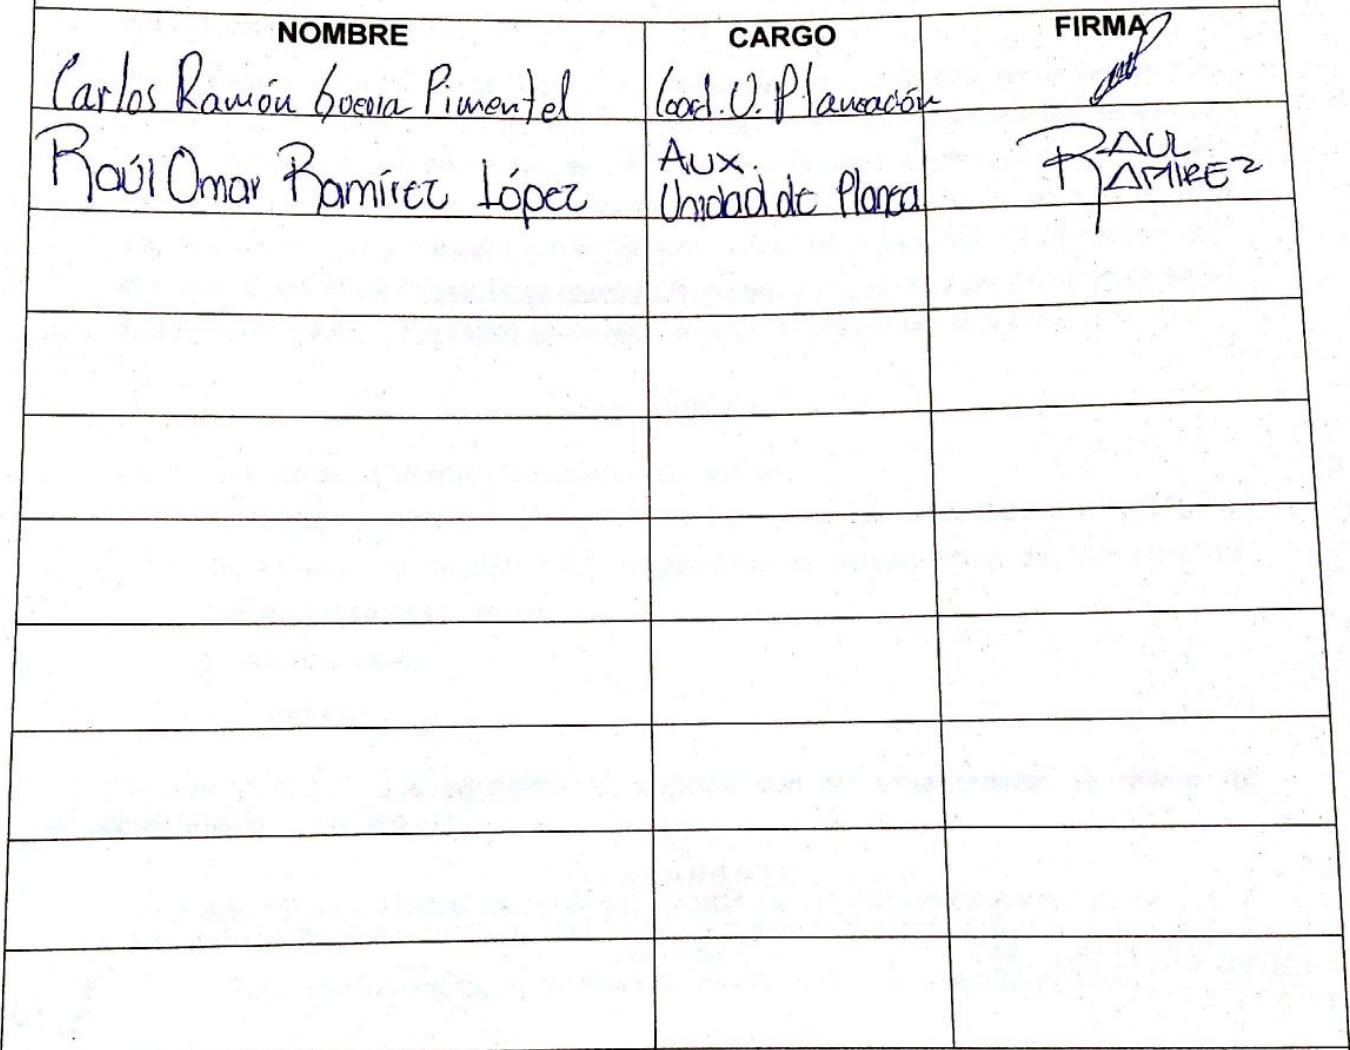 NOMBRE CARGO FIRMA
Carlos Ramón Guerra Pimentel Cood. U. Planeación
Raúl Omar Ramírez López AUX. Unidad de Planea RAUL RAMIREZ